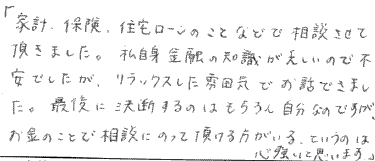 「家計、保険、住宅ローンのことなどで相談させて
頂きました。私自身金融の知識が乏しいので不
安でしたが、リラックスした雰囲気でお話できまし
た。最後に決断するのはもちろん自分なのですが、
お金のことで相談にのって頂ける方がいる、というのは
心強いと思います。」